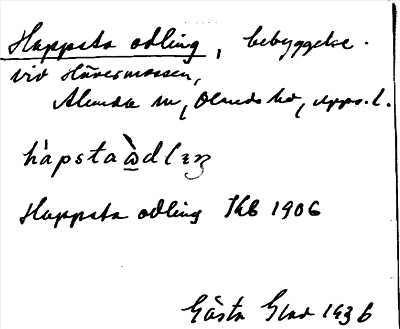 Happsta odling, bebyggelse.
vid Håvesmossen,
Alunda sn, Olands hd, Upps. l.
hàpstaò̱dlɩŋ
Happsta odling Hkb 1906
Gösta Glad 1936